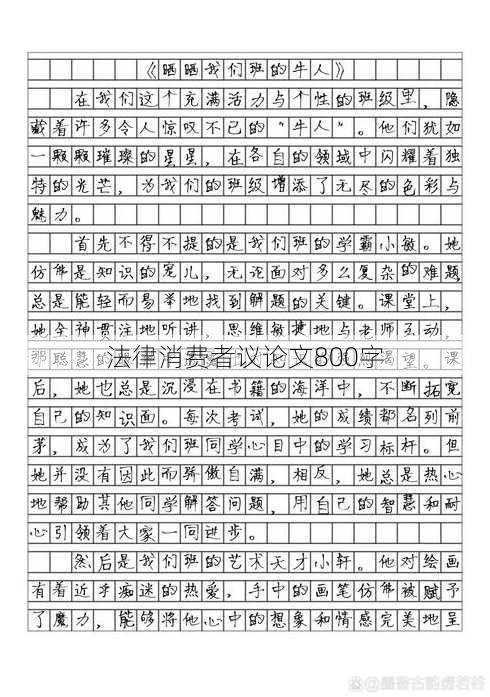 《晒晒我们班的牛人》
在我们这个充满活力与个性的班级里，隐
藏着许多令人惊叹不已的“牛人”。他们犹如
一颗颗璀璨的星星，在各自的领域中闪耀着独
特的光芒，为我们的班级增添了无尽的色彩与
魅力。
首先不得不提的是我们班的学霸小敏。她
仿佛是知识的宠儿，无论面对多么复杂的难题，
总是能轻而易举地找到解题的关键。课堂上，
她全神贯注地听讲，思维敏捷地与老师互动，
法律消费者议论文800字
那聪慧的 渴望。课
后，她也总是沉浸在书籍的海洋中，不断拓宽
自己的知识面。每次考试，她的成绩都名列前
茅，成为了我们班同学心目中的学习标杆。但
她并没有因此而骄傲自满，相反，她总是热心
地帮助其他同学解答问题，用自己的智慧和耐
心引领着大家一同进步。
然后是我们班的艺术天才小轩。他对绘画
有着近乎痴迷的热爱，手中的画笔仿佛被赋予
了魔力，能够将他心中的想象和情感完美地呈